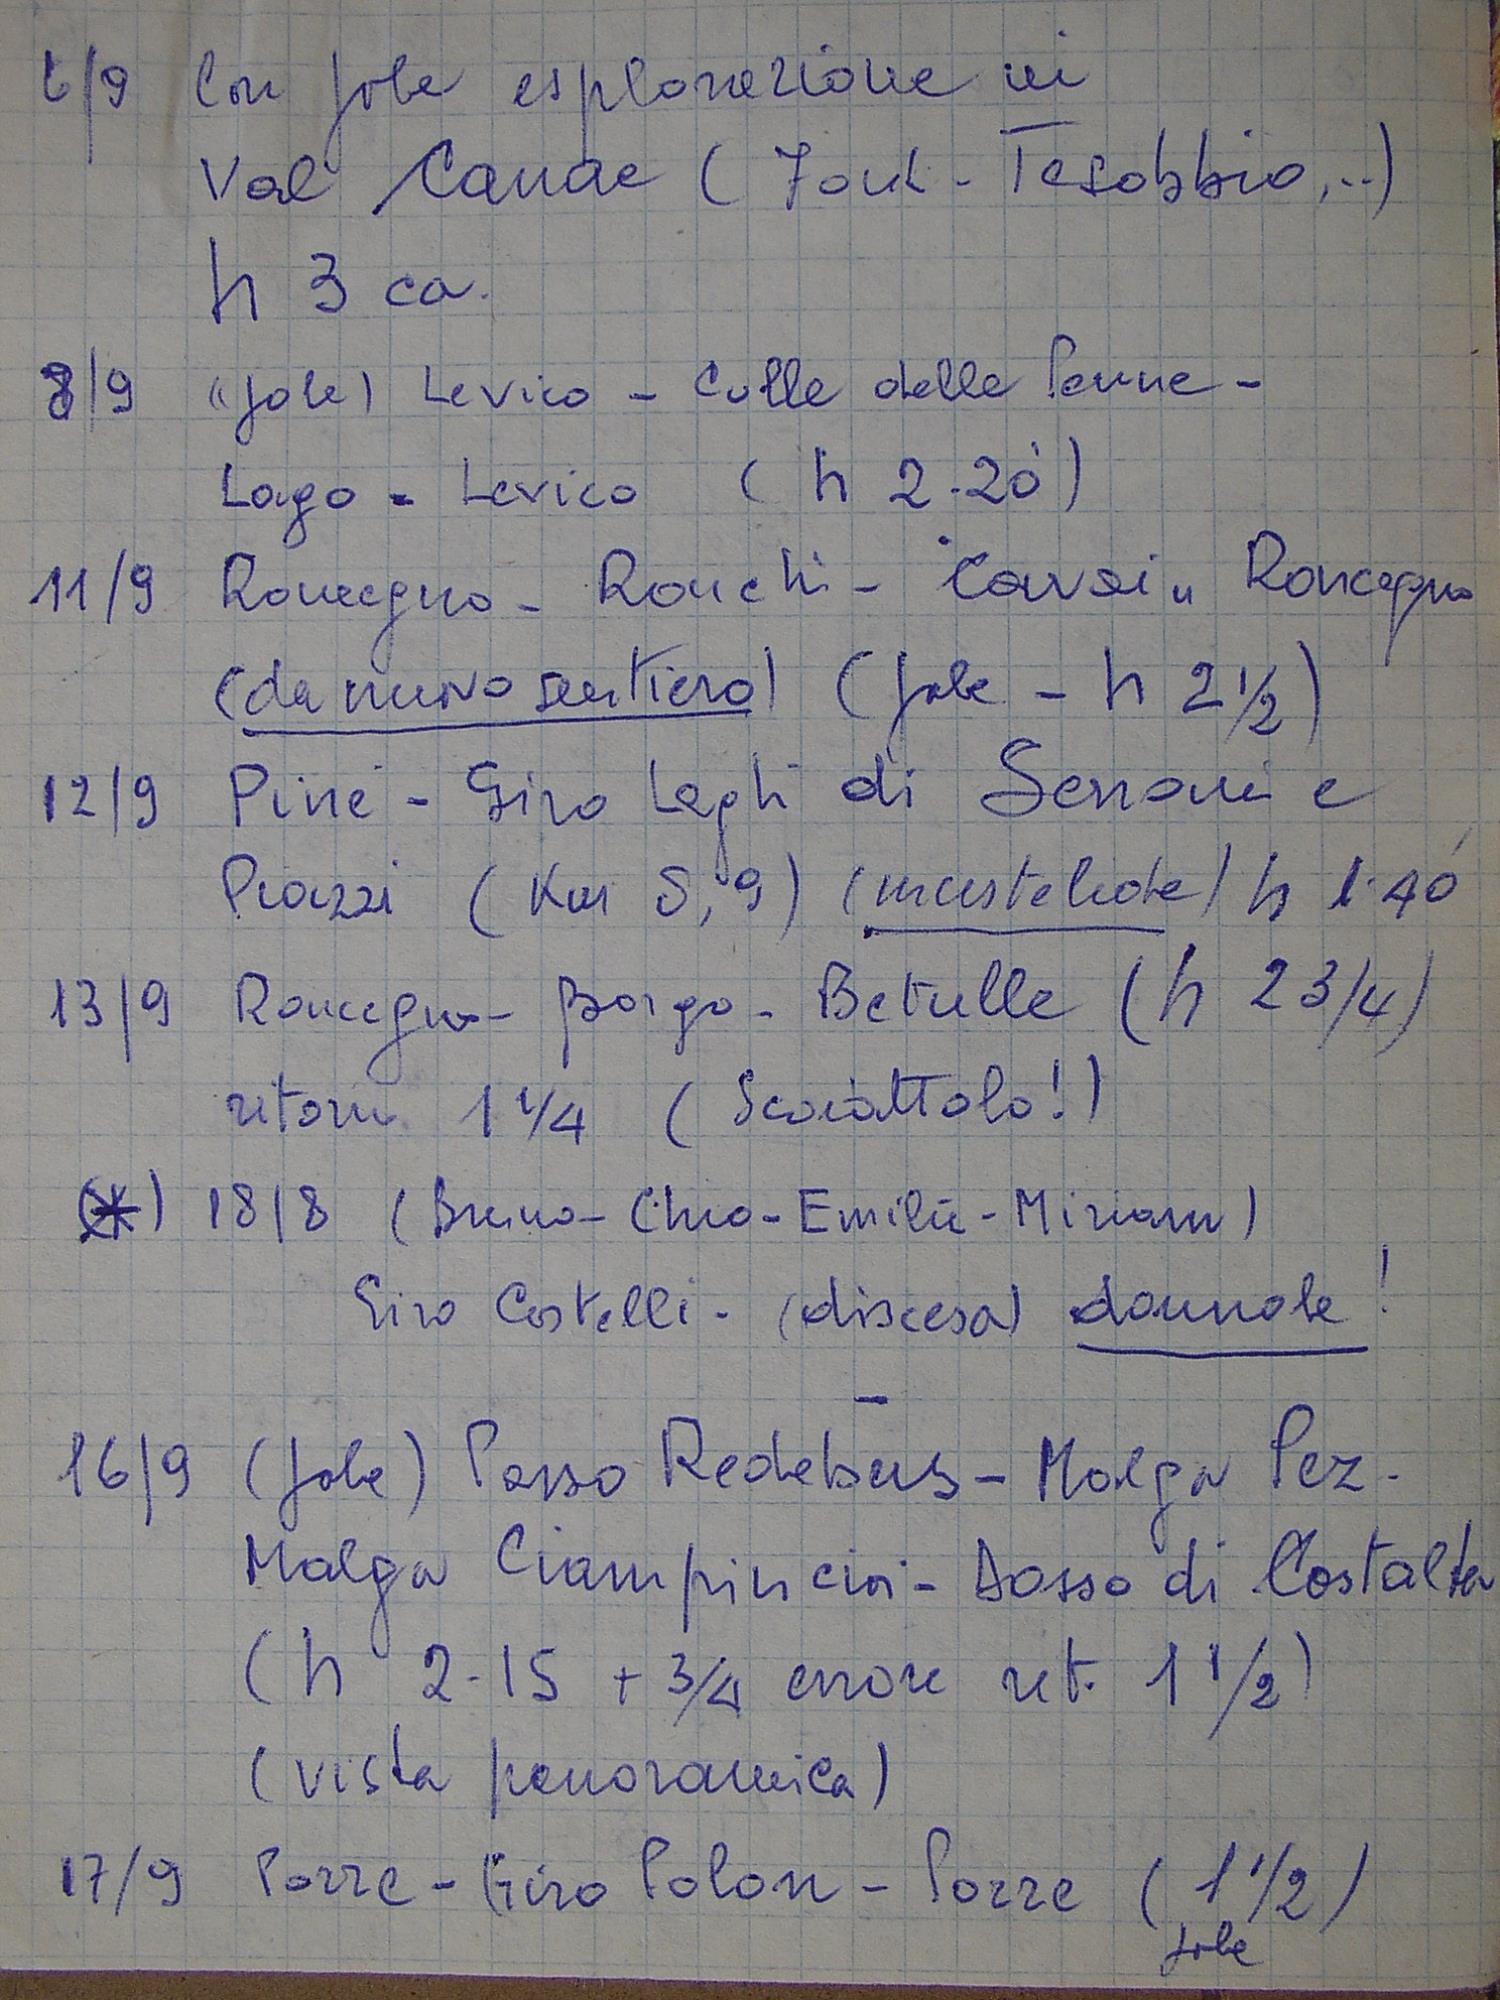 6/9 Con Jole esplorazione in
Val Canae ( - Tesobbio,..)
h 3 ca.
8/9 (Jole) Levico - Colle delle Penne -
Lago - Levico ( h 2.20')
11/9 Roncegno - Ronchi - Cavai - Roncegno
(da nuovo sentiero) (Jole - h 2 1/2)
12/9 Piné - Giro Laghi di Serraie e
Piazzi (Km 5,9) (mustelide) h 1.40'
13/9 Roncegno - Borgo - Betulle (h 2 3/4)
ritorno 1 1/4 (Scoiattolo!)
(*) 18/8 (Bruno - - Emilie - Miriam)
Giro Castelli - (discesa) donnole!
-
16/9 (Jole) Passo Redebus - Malga Pez -
Malga Ciampincioi - Dosso di Costalta
(h 2.15 + 3/4 errore rit. 1 1/2)
(vista panoramica)
17/9 Pozze - Giro Polon - Pozze ( 1 1/2 )
Jole